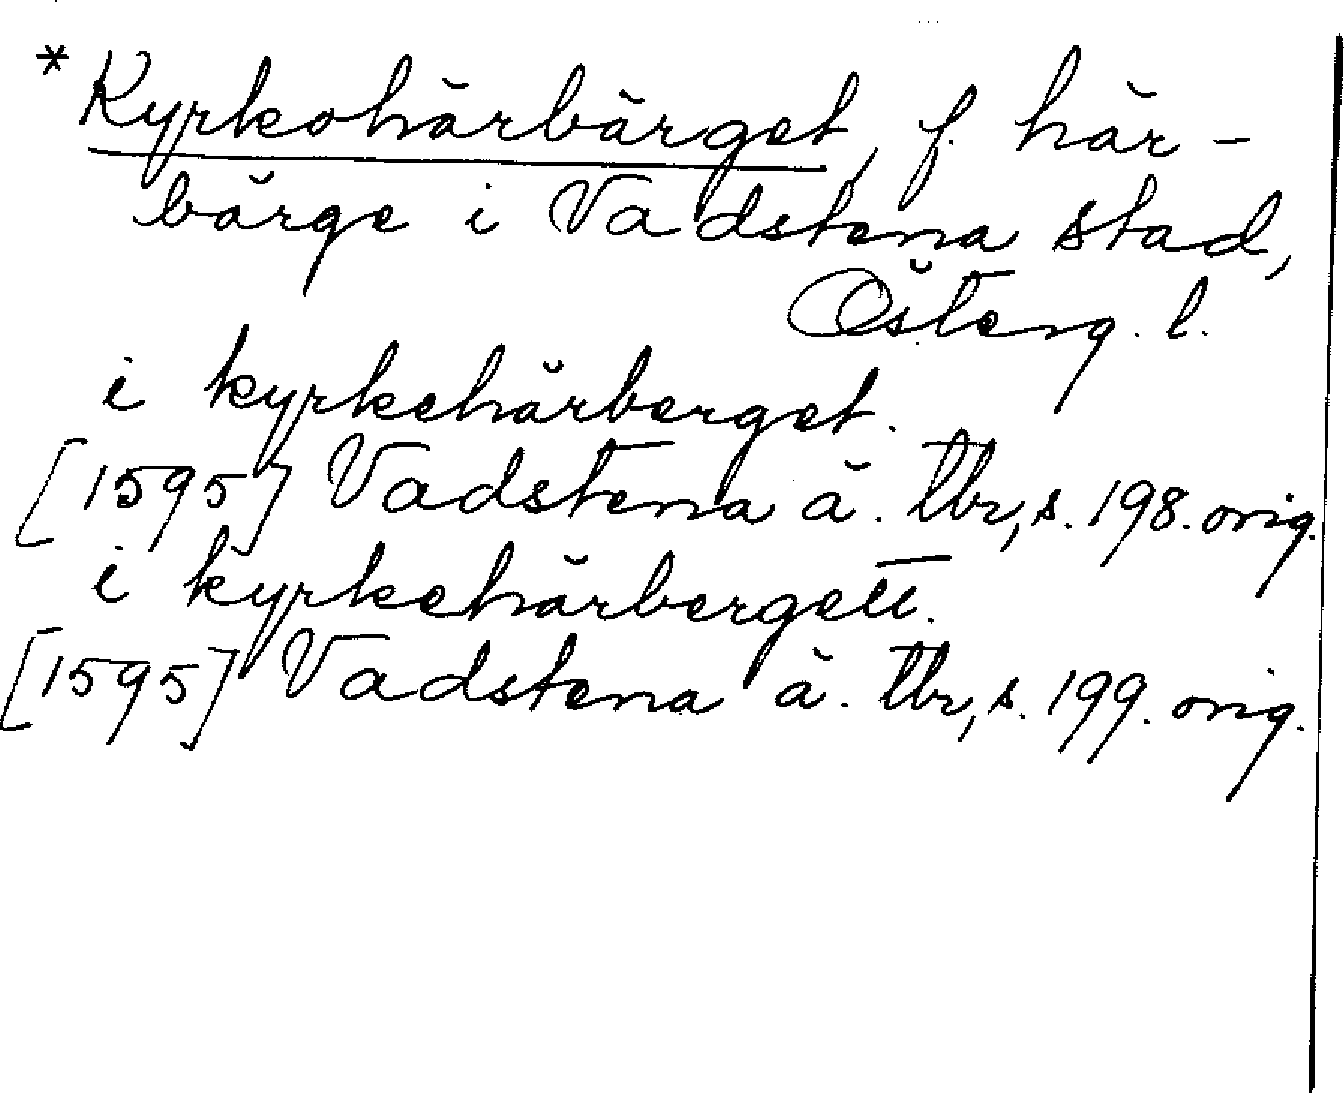 * Kyrkohärbärget, f. här-
bärge i Vadstena stad,
Österg. l.
i kyrkehärberget.
[1595] Vadstena ä. tbr, s. 198. orig.
i kyrkehärbergett.
[1595] Vadstena ä. tbr, s. 199. orig.